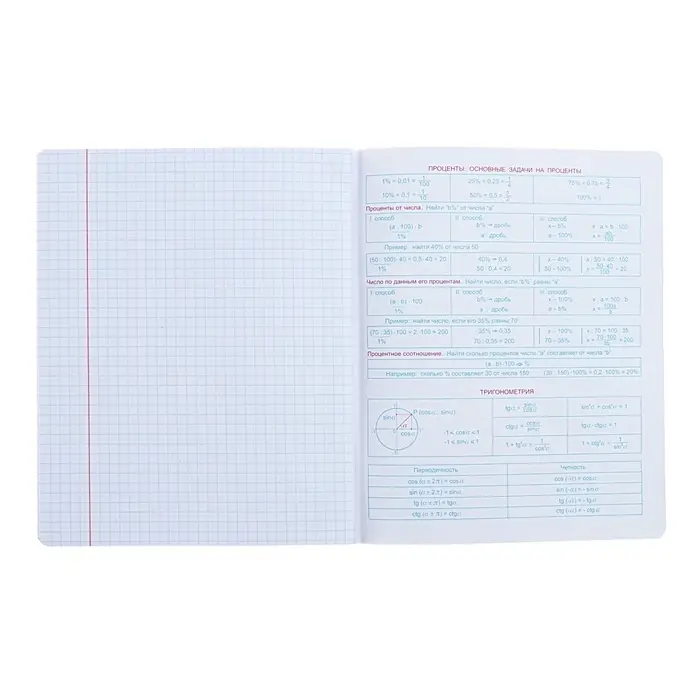 ПРОЦЕНТЫ. ОСНОВНЫЕ ЗАДАЧИ НА ПРОЦЕНТЫ
1% = 0,01 = 1/100 25% = 0,25 = 1/4 75% = 0,75 = 3/4
10% = 0,1 = 1/10 50% = 0,5 = 1/2 100% = 1
Проценты от числа. Найти "b%" от числа "a"
I способ II способ III способ
(a : 100) · b b% → дробь x – b% x : a = b : 100
1% a · дробь a – 100%
Пример: найти 40% от числа 50
(50 : 100) · 40 = 0,5 · 40 = 20 40% → 0,4 x – 40% x : 50 = 40 : 100
1% 50 · 0,4 = 20 50 – 100% x = 50·40/100 = 20
Число по данным его процентам. Найти число, если "b%" равны "a"
I способ II способ III способ
(a : b) · 100 b% → дробь x – 100% x : a = 100 : b
1% a : дробь a – b% x = 100a/b
Пример: найти число, если его 35% равны 70
(70 : 35) · 100 = 2 · 100 = 200 35% → 0,35 x – 100% x : 70 = 100 : 35
1% 70 : 0,35 = 200 70 – 35% x = 70·100/35 = 200
Процентное соотношение. Найти сколько процентов число "a" составляет от числа "b".
(a : b) · 100 %
Например: сколько % составляет 30 от числа 150 (30 : 150) · 100% = 0,2 · 100% = 20%
ТРИГОНОМЕТРИЯ
P (cosα; sinα)
sinα
cosα
-1 ≤ cosα ≤ 1
-1 ≤ sinα ≤ 1
tgα = sinα/cosα sin²α + cos²α = 1
ctgα = cosα/sinα tgα · ctgα = 1
1 + tg²α = 1/cos²α 1 + ctg²α = 1/sin²α
Периодичность Четность
cos (α ± 2π) = cosα cos (-α) = cosα
sin (α ± 2π) = sinα sin (-α) = - sinα
tg (α ± π) = tgα tg (-α) = - tgα
ctg (α ± π) = ctgα ctg (-α) = - ctgα